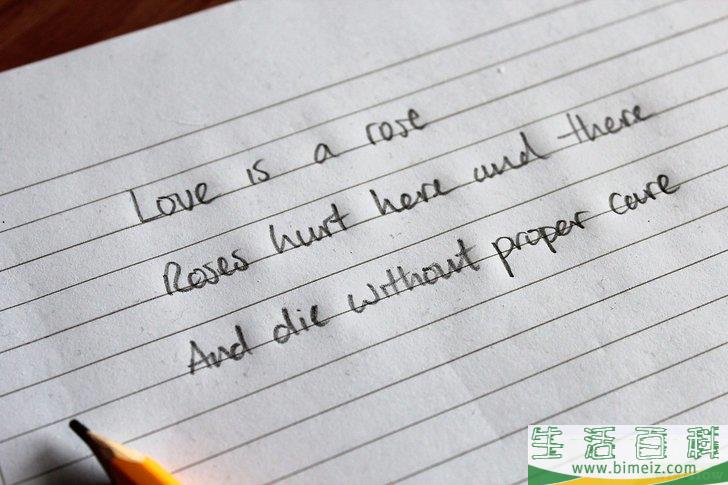 Love is a rose
Roses hurt here and there
And die without proper care
生活百科
www.bimeiz.com